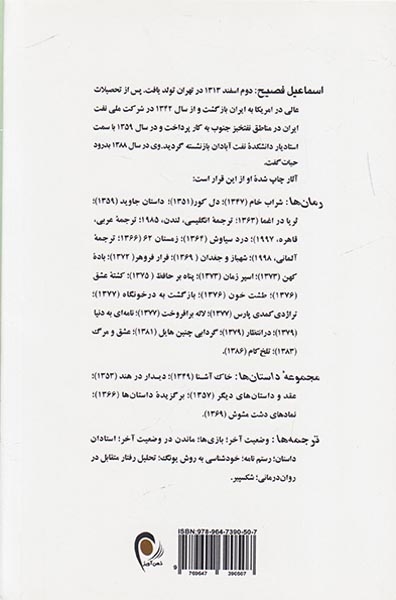 اسماعیل فصیح: دوم اسفند ۱۳۱۳ در تهران تولد یافت. پس از تحصیلات
عالی در امریکا به ایران بازگشت و از سال ۱۳۴۲ در شرکت ملی نفت
ایران در مناطق نفتخیز جنوب به کار پرداخت و در سال ۱۳۵۹ با سمت
استادیار دانشکدهٔ نفت آبادان بازنشسته گردید.وی در سال ۱۳۸۸ بدرود
حیات گفت.
آثار چاپ شدهٔ او از این قرار است:
رمان‌ها: شراب خام (۱۳۴۷)؛ دل کور(۱۳۵۱)؛ داستان جاوید (۱۳۵۹)؛
ثریا در اغما (۱۳۶۳؛ ترجمهٔ انگلیسی، لندن، ۱۹۸۵؛ ترجمهٔ عربی،
قاهره، ۱۹۹۷)؛ درد سیاوش (۱۳۶۴)؛ زمستان ۶۲ (۱۳۶۶؛ ترجمهٔ
آلمانی، ۱۹۹۸)؛ شهباز و جغدان (۱۳۶۹)؛ فرار فروهر (۱۳۷۲)؛ بادهٔ
کهن (۱۳۷۳)؛ اسیر زمان (۱۳۷۳)؛ پناه بر حافظ (۱۳۷۵)؛ کشتهٔ عشق
(۱۳۷۶)؛ طشت خون (۱۳۷۶)؛ بازگشت به درخونگاه (۱۳۷۷)؛
تراژدی کمدی پارس (۱۳۷۷)؛ لاله برافروخت (۱۳۷۷)؛ نامه‌ای به دنیا
(۱۳۷۹)؛ در انتظار (۱۳۷۹)؛ گردابی چنین هایل (۱۳۸۱)؛ عشق و مرگ
(۱۳۸۳)؛ تلخ‌کام (۱۳۸۶).
مجموعهٔ داستان‌ها: خاک آشنا (۱۳۴۹)؛ دیدار در هند (۱۳۵۳)؛
عقد و داستان‌های دیگر (۱۳۵۷)؛ برگزیدهٔ داستان‌ها (۱۳۶۶)؛
نمادهای دشت مشوش (۱۳۶۹).
ترجمه‌ها: وضعیت آخر؛ بازی‌ها؛ ماندن در وضعیت آخر؛ استادان
داستان؛ رستم نامه؛ خودشناسی به روش یونگ؛ تحلیل رفتار متقابل در
روان‌درمانی؛ شکسپیر.
ذهن‌آویز
ISBN: 978-964-7390-50-7
9 789647 390507